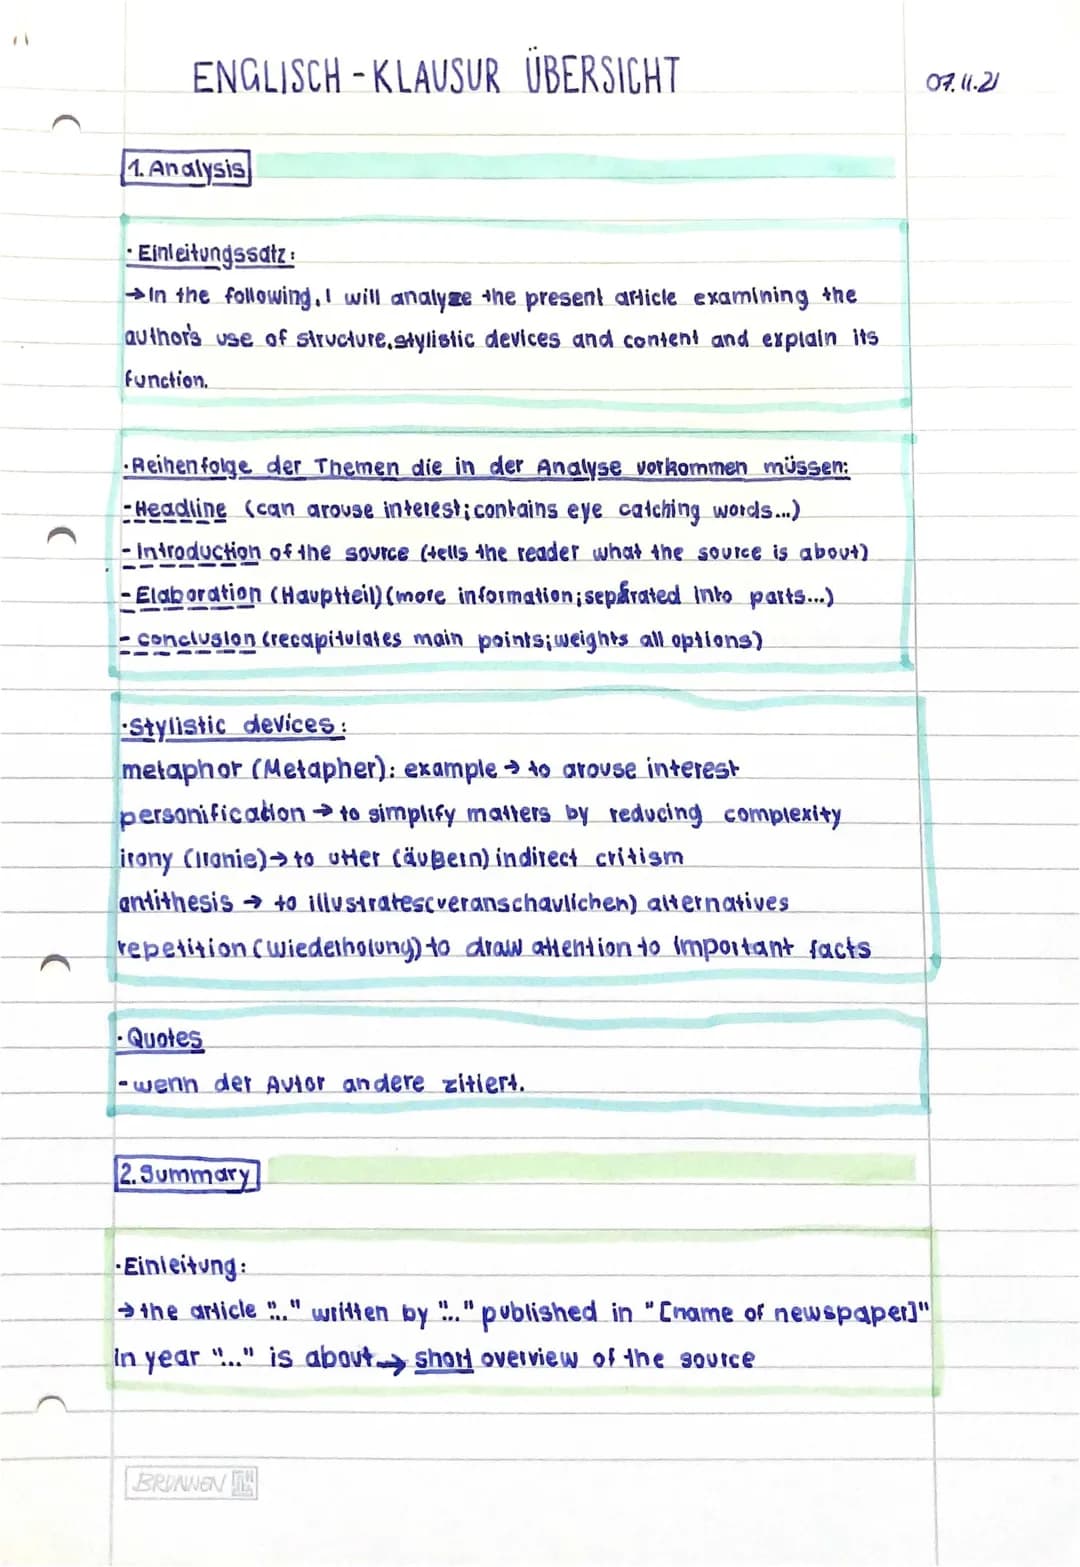 ENGLISCH - KLAUSUR ÜBERSICHT
07.11.21
1. Analysis
· Einleitungssatz:
→In the following, I will analyze the present article examining the
author's use of structure, stylistic devices and content and explain its
function.
·Reihenfolge der Themen die in der Analyse vorkommen müssen:
-Headline (can arouse interest; contains eye catching words...)
-Introduction of the source (tells the reader what the source is about)
-Elaboration (Hauptteil) (more information; separated into parts...)
-conclusion (recapitulates main points; weights all options)
·Stylistic devices:
metaphor (Metapher): example → to arouse interest
personification → to simplify matters by reducing complexity
irony (Ironie) → to utter (äußern) indirect critism
antithesis → to illustrates (veranschaulichen) alternatives
repetition (Wiederholung) to draw attention to important facts
·Quotes
-wenn der Autor andere zitiert.
2. Summary
·Einleitung:
→ the article "..." written by "..." published in "[name of newspaper]"
in year "..." is about → short overview of the source
BRUNNEN